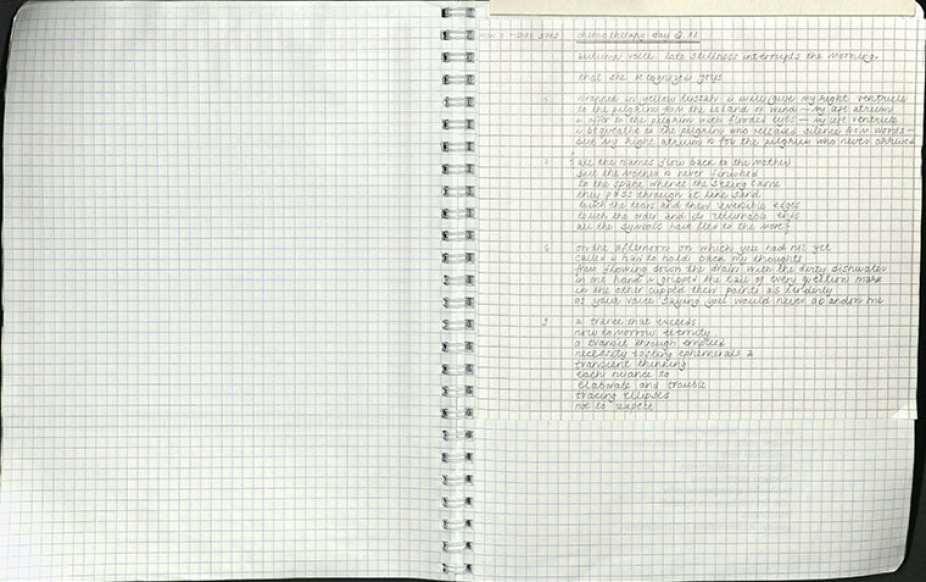 chemotherapy day 2.11
autumn voice late stillness interrupts the morning.
that she recognizes joys
wrapped in yellow i will give my right ventricle
to the pilgrim from the island of wind — my left atrium
i offer to the pilgrim with flooded eyes — my left ventricle
i bequeath to the pilgrim who released silence from words —
but my right atrium is for the pilgrim who never arrived
all the names flow back to the mother
but the mother is never finished
to the space whence the string came
they pass through it like sand
touch the tears and their reversible edges
touch the order and its returnable
all the symbols have fled to the
6 on the afternoon on which you had not yet
called i had to hold back my thoughts
from flowing down the drain with the dirty dishwater
in one hand i gripped the tail of every question mark
in the other cupped their points as tenderly
as your voice saying you would never abandon me
9 a trance that exceeds
now tomorrow eternity
a transit through emptied
necessity tasting ephemerals a
transient thinking
each nuance to
elaborate and trouble
tracing ellipses
not to expect